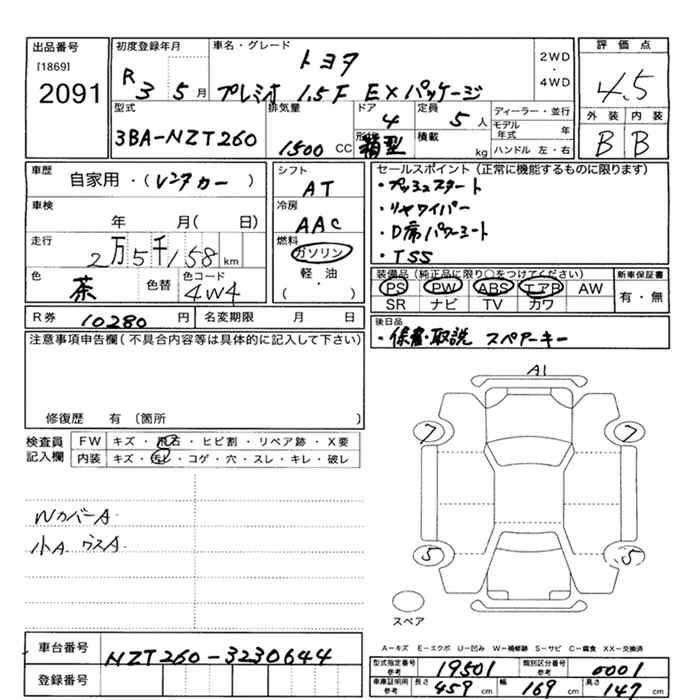 出品番号
[1869]
2091
初度登録年月
R3 5月
車名・グレード
トヨタ
プレミオ 1.5F EXパッケージ
2WD
・
4WD
評価点
4.5
外装 内装
B B
型式
3BA-NZT260
排気量
1500 CC
ドア
4
形状
箱型
定員
5人
積載
kg
ディーラー・並行
モデル年式 年
ハンドル 左・右
車歴
自家用・(レンタカー)
車検
年 月( 日)
走行
2万5千158km
色
茶
色替
色コード
4W4
シフト
AT
冷房
AAC
燃料
ガソリン
軽・油
( )
セールスポイント(正常に機能するものに限ります)
・プッシュスタート
・リヤワイパー
・D席パワーシート
・TSS
装備品(純正品に限り○をつけてください)
PS PW ABS エアB AW
SR ナビ TV カワ
新車保証書
有・無
R券 10280円
名変期限 月 日
後日品
・保書・取説 スペアーキー
注意事項申告欄(不具合内容等は具体的に記入して下さい)
修復歴 有(箇所 )
検査員記入欄
FW キズ・飛石・ヒビ割・リペア跡・X要
内装 キズ・汚レ・コゲ・穴・スレ・キレ・破レ
WカバーA
小A ウスA
A1
7 7
5 5
スペア
A-キズ E-エクボ U-凹み W-補修跡 S-サビ C-腐食 XX-交換済
車台番号
NZT260-3230644
登録番号
型式指定番号参考 19501
類別区分番号参考 0001
車庫証明用参考 長さ 459cm 幅 169cm 高さ 147cm